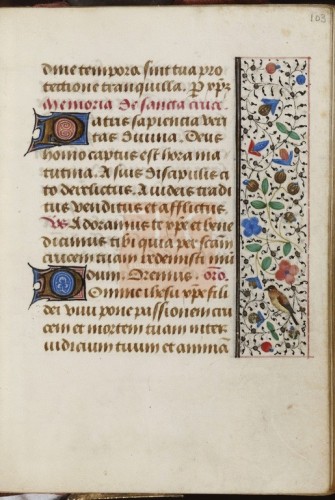 103
dine tempora sint tua pro
tectione tranquilla. P xp̄ꝫ
Memoria de sancta cruce
Patris sapiencia veri
tas divina. Deus
homo captus est hora ma
tutina. A suis discipulis ci
to derelictus. A iudeis tradi
tus venditus et afflictus.
Vs Adoramus te xp̄e et bene
dicimus tibi quia per scām
crucem tuam redemisti mū
dum. Oremus. oro.
Domine ihesu xp̄e fili
dei vivi pone passionem cru
cem et mortem tuam inter
iudicium tuum et animā